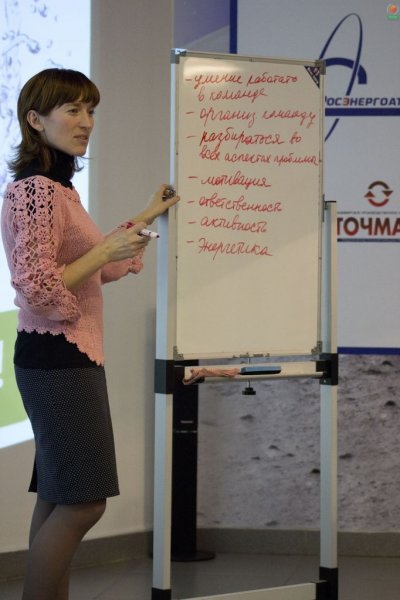 - умение работать
в команде
- организ. команду
- разбираться во
всех аспектах проблема
- мотивация
- ответственность
- активность
- Энергетика
ОСЭНЕРГОАТ
ТОЧМА
!